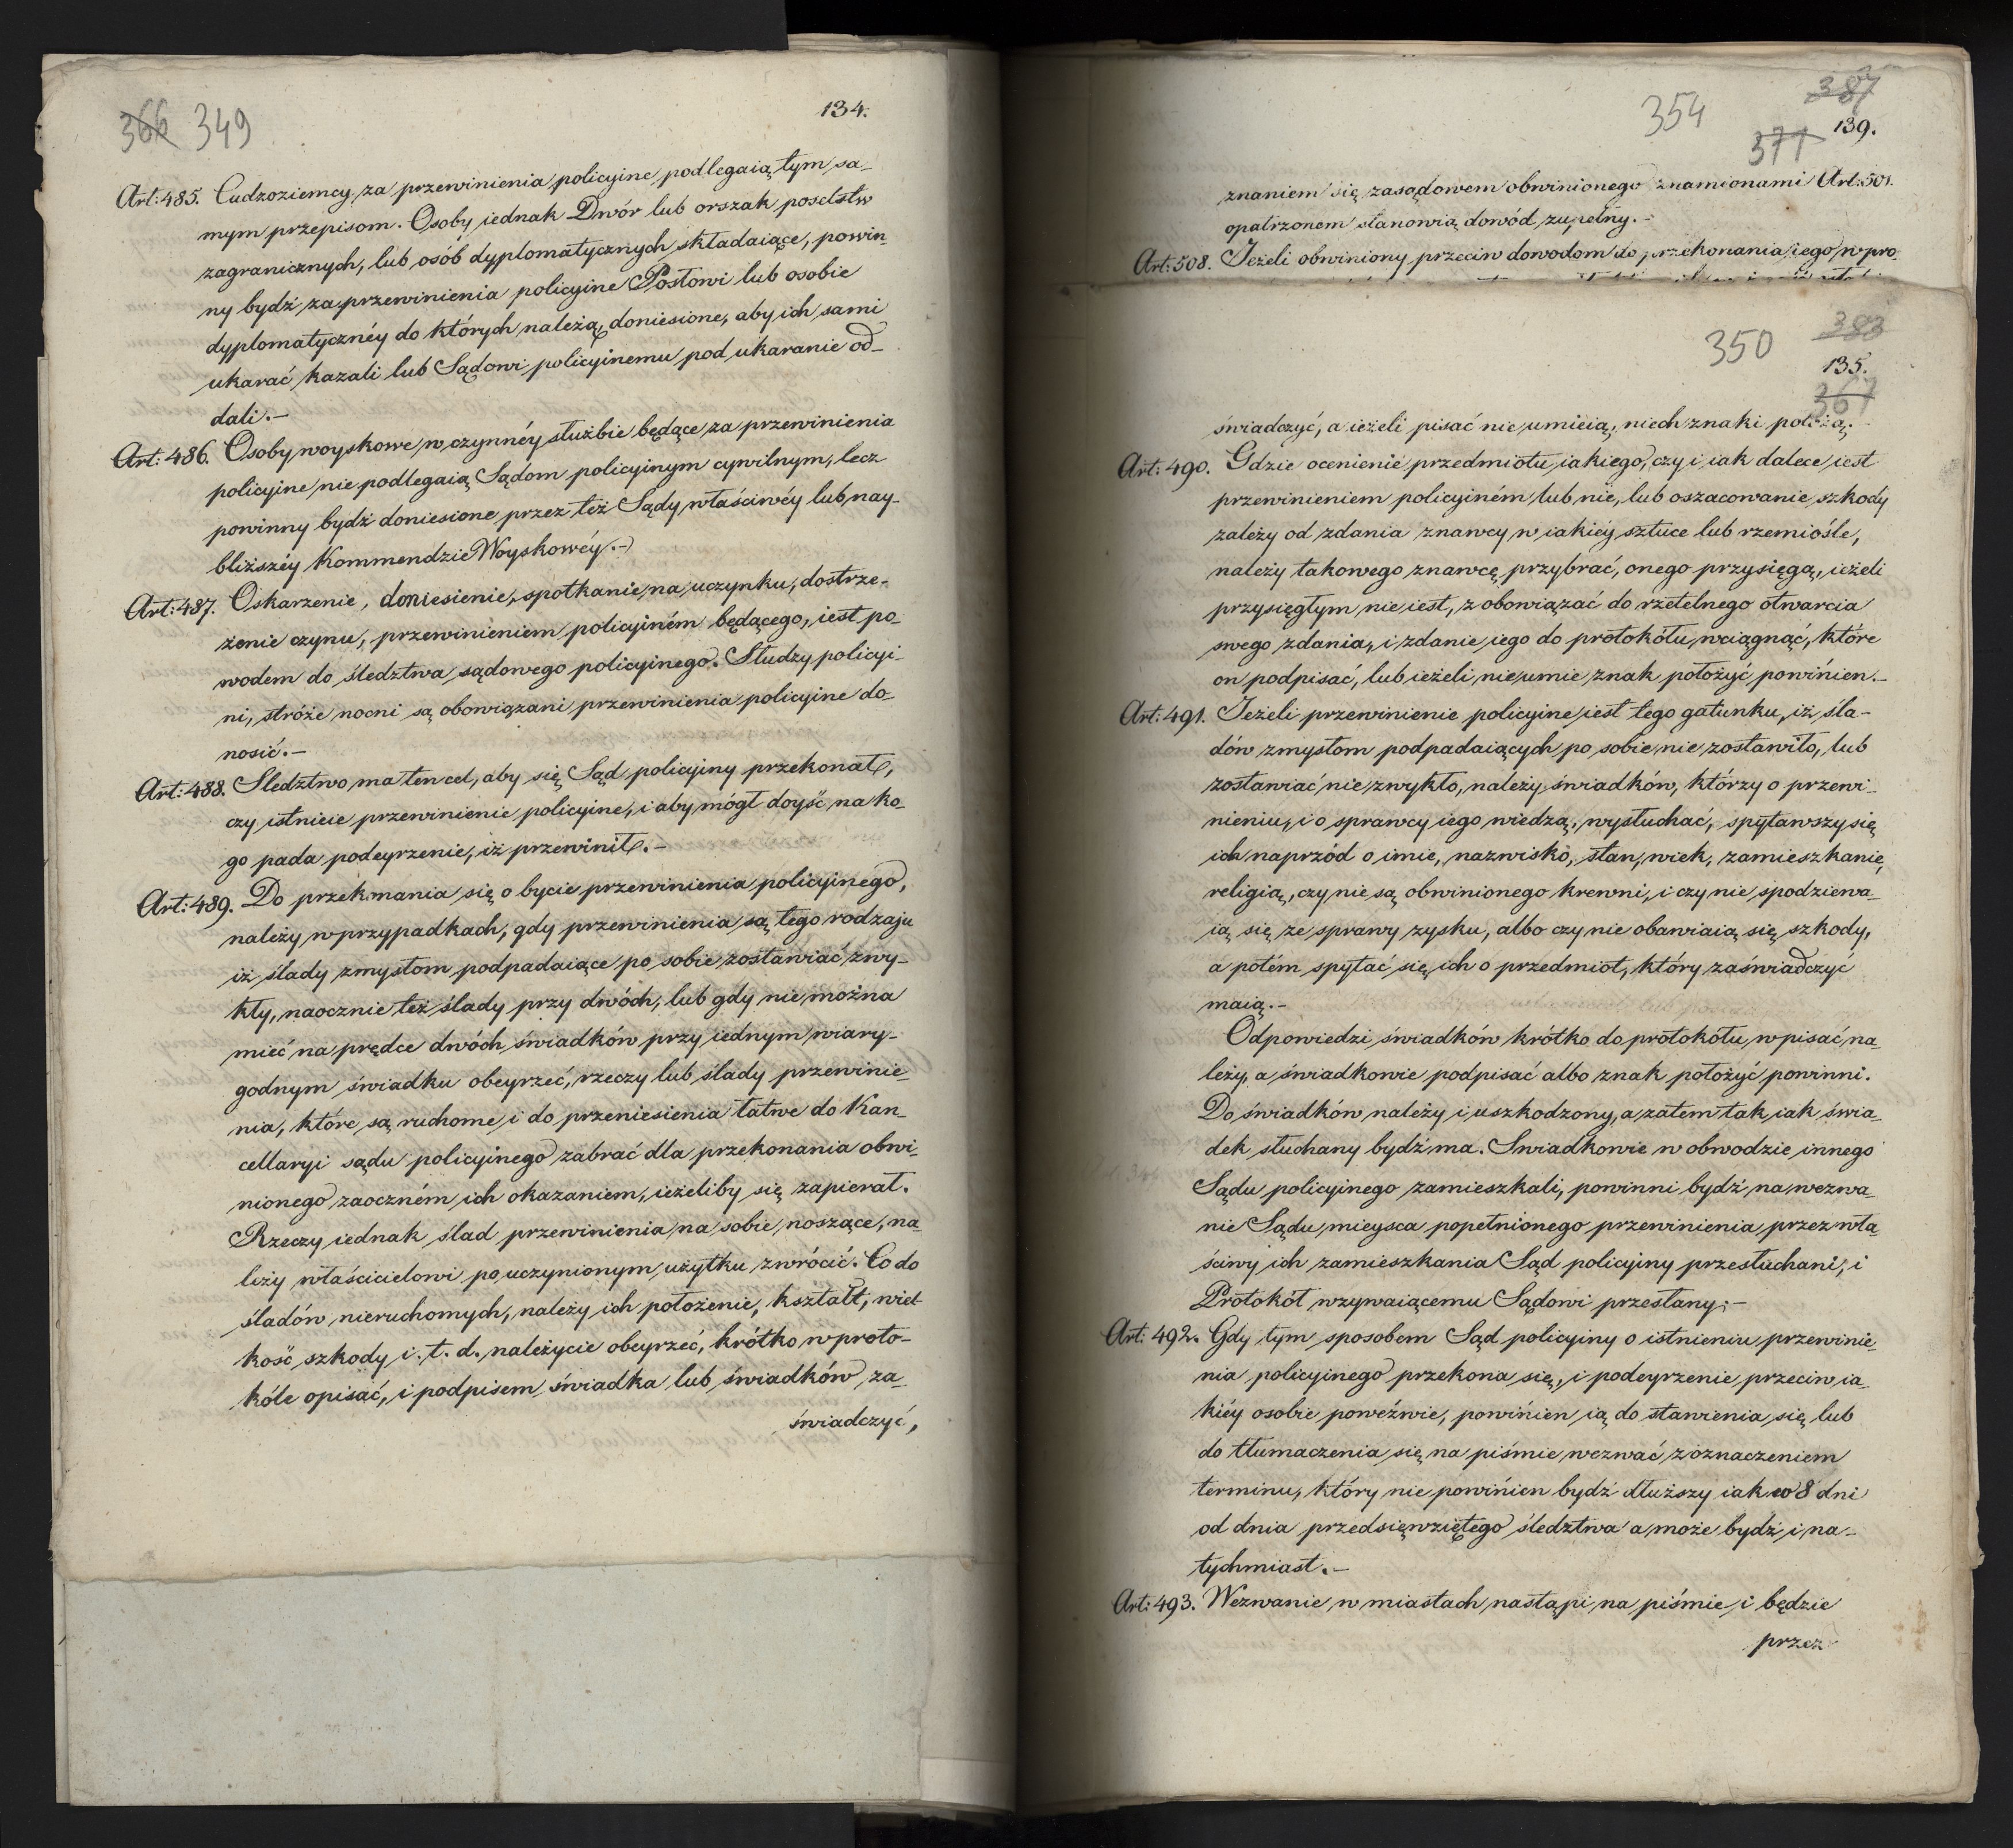 366 349
134.
Art: 485. Cudzoziemcy za przewinienia policyine podlegaią tym sa-
mym przepisom. Osoby iednak Dwór lub orszak poselstw
zagranicznych, lub osób dyplomatycznych składaiące, powin-
ny bydź za przewinienia policyine Posłowi lub osobie
dyplomatycznéy do których należą, doniesione, aby ich sami
ukarać kazali lub Sądowi policyinemu pod ukaranie od-
dali.-
Art: 486. Osoby woyskowe w czynnéy służbie będące za przewinienia
policyine nie podlegaią Sądom policyinym cywilnym, lecz
powinny bydź doniesione przez też Sądy właściwéy lub nay-
bliższéy Kommendzie Woyskowéy.-
Art: 487. Oskarzenie, doniesienie, spotkanie na uczynku, dostrze-
żenie czynu, przewinieniem policyiném będącego, iest po-
wodem do śledztwa sądowego policyinego. Słudzy policyi-
ni, stróże nocni są obowiązani przewinienia policyine do-
nosić.-
Art: 488. Sledztwo ma ten cel, aby się Sąd policyiny przekonał,
czy istnieie przewinienie policyine, i aby mógł doyść na ko-
go pada podeyrzenie, iż przewinił.-
Art: 489. Do przekonania się o bycie przewinienia policyinego,
należy w przypadkach, gdy przewinienia są tego rodzaju
iż ślady zmysłom podpadaiące po sobie zostawiać zwy-
kły, naocznie też ślady przy dwóch, lub gdy nie można
mieć na prędce dwóch świadków przy iednym wiary-
godnym świadku obeyrzeć, rzeczy lub ślady przewinie-
nia, które są ruchome i do przeniesienia łatwe do Kan-
cellaryi sądu policyinego zabrać dla przekonania obwi-
nionego zaoczném ich okazaniem, ieżeliby się zapierał.
Rzeczy iednak ślad przewinienia na sobie noszące, na-
leży właścicielowi po uczynionym użytku zwrócić. Co do
śladów nieruchomych, należy ich położenie, kształt, wiel-
kość szkody i. t. d. należycie obeyrzeć, krótko w proto-
kóle opisać, i podpisem świadka lub świadków za-
świadczyć,
354
387
377
139.
znaniem się zasądowem obwinionego znamionami Art: 501.
opatrzonem stanowią dowód zupełny.-
Art: 508. Jeżeli obwiniony przeciw dowodom do przekonania iego w pro-
350
383
135.
367
świadczyć, a ieżeli pisać nie umieią, niech znaki położą.-
Art: 490. Gdzie ocenienie przedmiotu iakiego, czy i iak dalece iest
przewinieniem policyiném lub nie, lub oszacowanie szkody
zależy od zdania znawcy w iakiéy sztuce lub rzemiośle,
należy takowego znawcę przybrać, onego przysięgą, ieżeli
przysięgłym nie iest, zobowiązać do rzetelnego otwarcia
swego zdania, i zdanie iego do protokółu wciągnąć, które
on podpisać, lub ieżeli nie umie znak położyć powinien.-
Art: 491. Jeżeli przewinienie policyine iest tego gatunku, iż śla-
dów zmysłom podpadaiących po sobie nie zostawiło, lub
zostawiać nie zwykło, należy świadków, którzy o przewi-
nieniu, i o sprawcy iego wiedzą, wysłuchać, spytawszy się
ich naprzód o imie, nazwisko, stan, wiek, zamieszkanie,
religią, czy nie są obwinionego krewni, i czy nie spodziewa-
ią się ze sprawy zysku, albo czy nie obawiaią się szkody,
a potém spytać się ich o przedmiot, który zaświadczyć
maią.-
Odpowiedzi świadków krótko do protokółu wpisać na-
leży, a świadkowie podpisać albo znak położyć powinni.
Do świadków należy i uszkodzony, a zatem tak iak świa-
dek słuchany bydź ma. Swiadkowie w obwodzie innego
Sądu policyinego zamieszkali, powinni bydź na wezwa-
nie Sądu mieysca popełnionego przewinienia przez wła-
ściwy ich zamieszkania Sąd policyiny przesłuchani, i
Protokół wzywaiącemu Sądowi przesłany.-
Art: 492. Gdy tym sposobem Sąd policyiny o istnieniu przewinie-
nia policyinego przekona się, i podeyrzenie przeciw ia-
kiéy osobie poweźwie, powinien ią do stawienia się lub
do tłumaczenia się na piśmie wezwać z oznaczeniem
terminu, który nie powinien bydź dłuższy iak w 8 dni
od dnia przedsięwziętego śledztwa a może bydź i na-
tychmiast.-
Art: 493. Wezwanie w miastach nastąpi na piśmie i będzie
przez